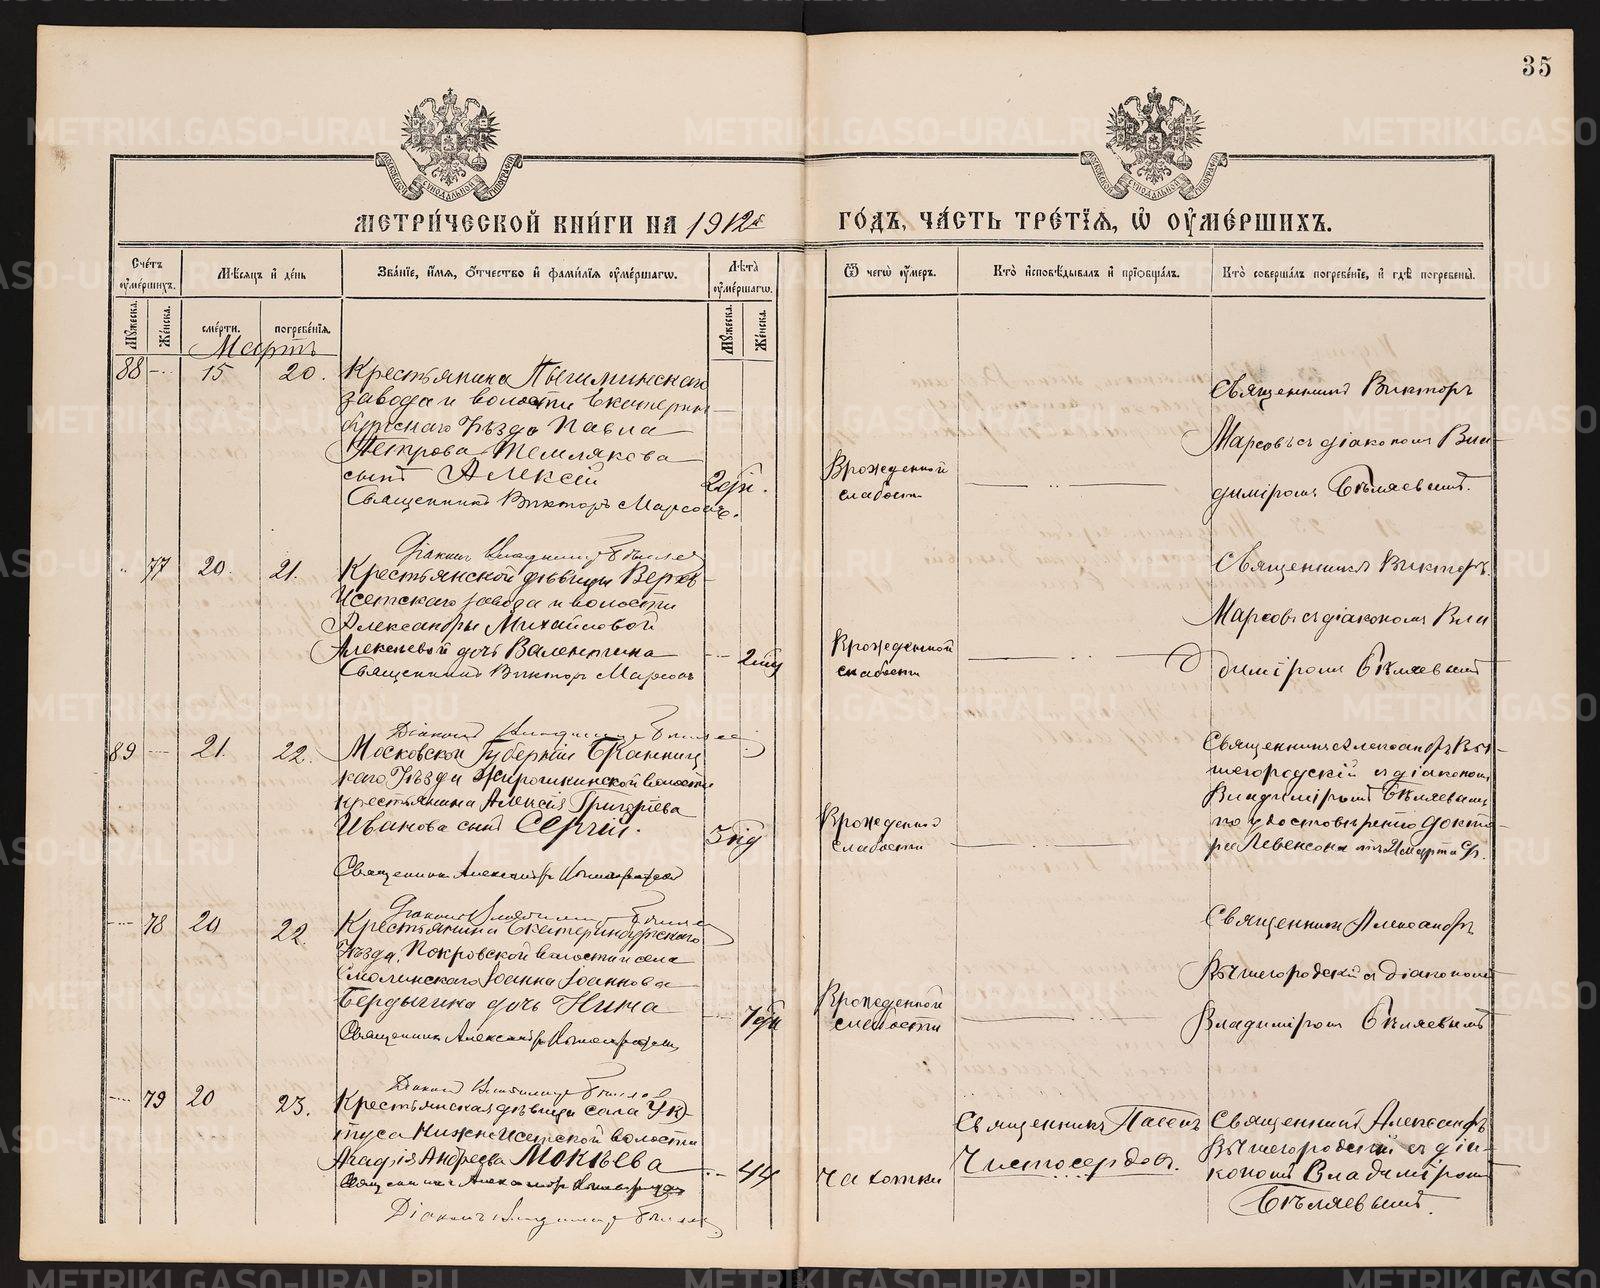 35
МЕТРИ́ЧЕСКОЙ КНИ́ГИ НА 1912й ГО́ДЪ, ЧА́СТЬ ТРЕ́ТЇѦ, Ѡ҆ ОУ҆МЕ́РШИХЪ.
Сче́тъ оу҆ме́ршихъ.
Мꙋжеска.
Же́нска.
Мѣсѧцъ и҆ де́нь
сме́рти.
погребе́нїѧ.
Зва́нїе, и҆́мѧ, ѻ҆́тчество и҆ фами́лїѧ оу҆ме́ршагѡ.
Лѣ́та оу҆ме́ршагѡ.
Мꙋжеска.
Же́нска.
Ѿ чегѡ̀ оу҆́меръ.
Кто̀ и҆сповѣ́дывалъ и҆ прїѻбща́лъ.
Кто̀ соверша́лъ погребе́нїе, и҆ гдѣ̀ погребены̀.
Мартъ
88 15 20.
Крестьянина Пышминскаго
завода и волости Екатерин-
бургскаго Уѣзда Павла
Петрова Темлякова
сынъ Алексій
2 дн.
Священникъ Викторъ Марсовъ.
Діаконъ Владимиръ Бѣляев
Врожденной
слабости
Священникъ Викторъ
Марсовъ съ діакономъ Вла-
димiромъ Бѣляевымъ.
77 20. 21.
Крестьянской дѣвицы Верхъ-
Исетскаго завода и волости
Александры Михайловой
Алексѣевой дочь Валентина
Священникъ Викторъ Марсовъ
Діаконъ Владимиръ Бѣляев
Врожденной
слабости
Священникъ Викторъ
Марсовъ съ діакономъ Вла
димiромъ Бѣляевымъ
89 21. 22.
Московской Губерніи Бронниц
каго Уѣзда Жирошкинской волости
крестьянина Алексія Григорьева
Иванова сынъ Сергій.
Священникъ Александръ
Діаконъ Владимиръ Бѣляев
Врожденной
слабости
Священникъ Александръ Вы-
шегородскій съ діакономъ
Владиміромъ Бѣляевымъ
по удостовѣренію докто-
ра Левенсона отъ 21 марта
78 20 22.
Крестьянина Екатеринбургскаго
Уѣзда, Покровской волости и села
Смолинскаго Іоанна Іоаннова
Бердыгина дочь Нина
Священникъ Александръ
Діаконъ Владимиръ Бѣляев
Врожденной
слабости
Священникъ Александръ
Вышегородскій съ діакономъ
Владиміромъ Бѣляевымъ
79 20 23.
Крестьянская дѣвица села Ук-
туса Нижне Исетской волости
Агафія Андреева Мокѣева
44
Священникъ Александръ
Діаконъ Владимиръ Бѣляев
Чахотки
Священникъ
Чистосердовъ.
Священникъ Александръ
Вышегородскій съ діа-
кономъ Владиміромъ
Бѣляевымъ.
METRIKI.GASO-URAL.RU